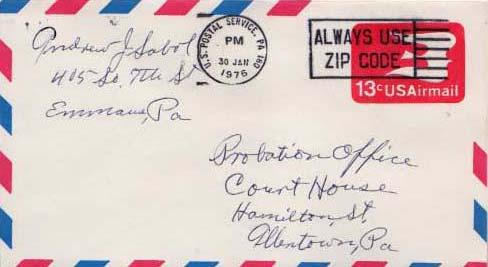 Andrew J. Sobol
405 So. 7th St
Emmaus, Pa
U.S. POSTAL SERVICE, PA 180
PM
30 JAN
1976
ALWAYS USE
ZIP CODE
13c USAirmail
Probation Office
Court House
Hamilton, St.
Allentown, Pa